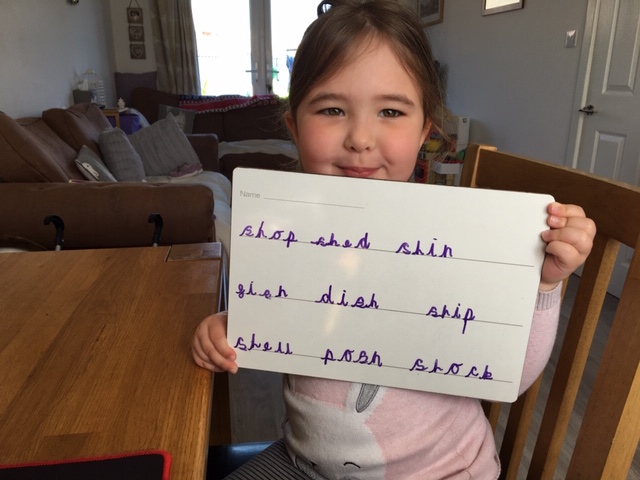 Name
shop shed shin
fish dish ship
shell posh shock